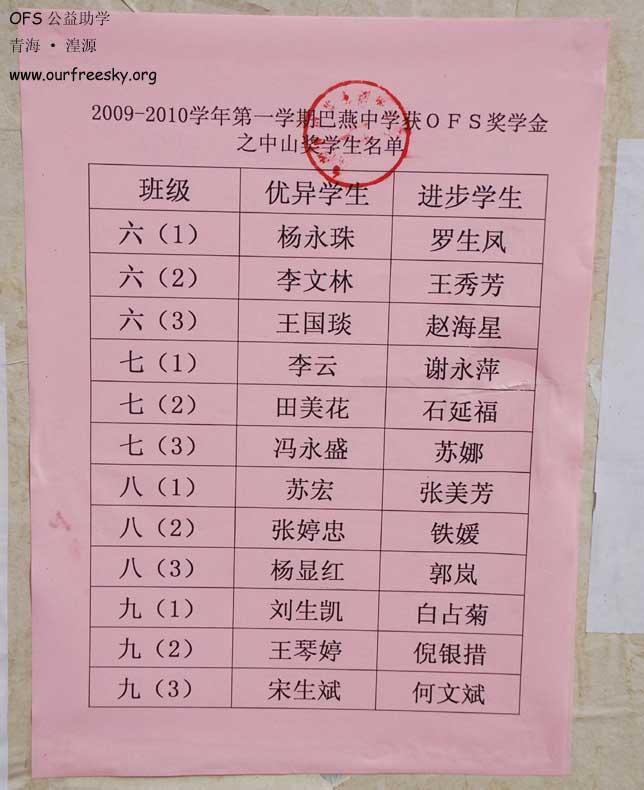 OFS 公益助学
青海 · 湟源
www.ourfreesky.org
2009-2010学年第一学期巴燕中学获OFS奖学金
之中山奖学生名单
班级 优异学生 进步学生
六（1） 杨永珠 罗生凤
六（2） 李文林 王秀芳
六（3） 王国琰 赵海星
七（1） 李云 谢永萍
七（2） 田美花 石延福
七（3） 冯永盛 苏娜
八（1） 苏宏 张美芳
八（2） 张婷忠 铁媛
八（3） 杨显红 郭岚
九（1） 刘生凯 白占菊
九（2） 王琴婷 倪银措
九（3） 宋生斌 何文斌